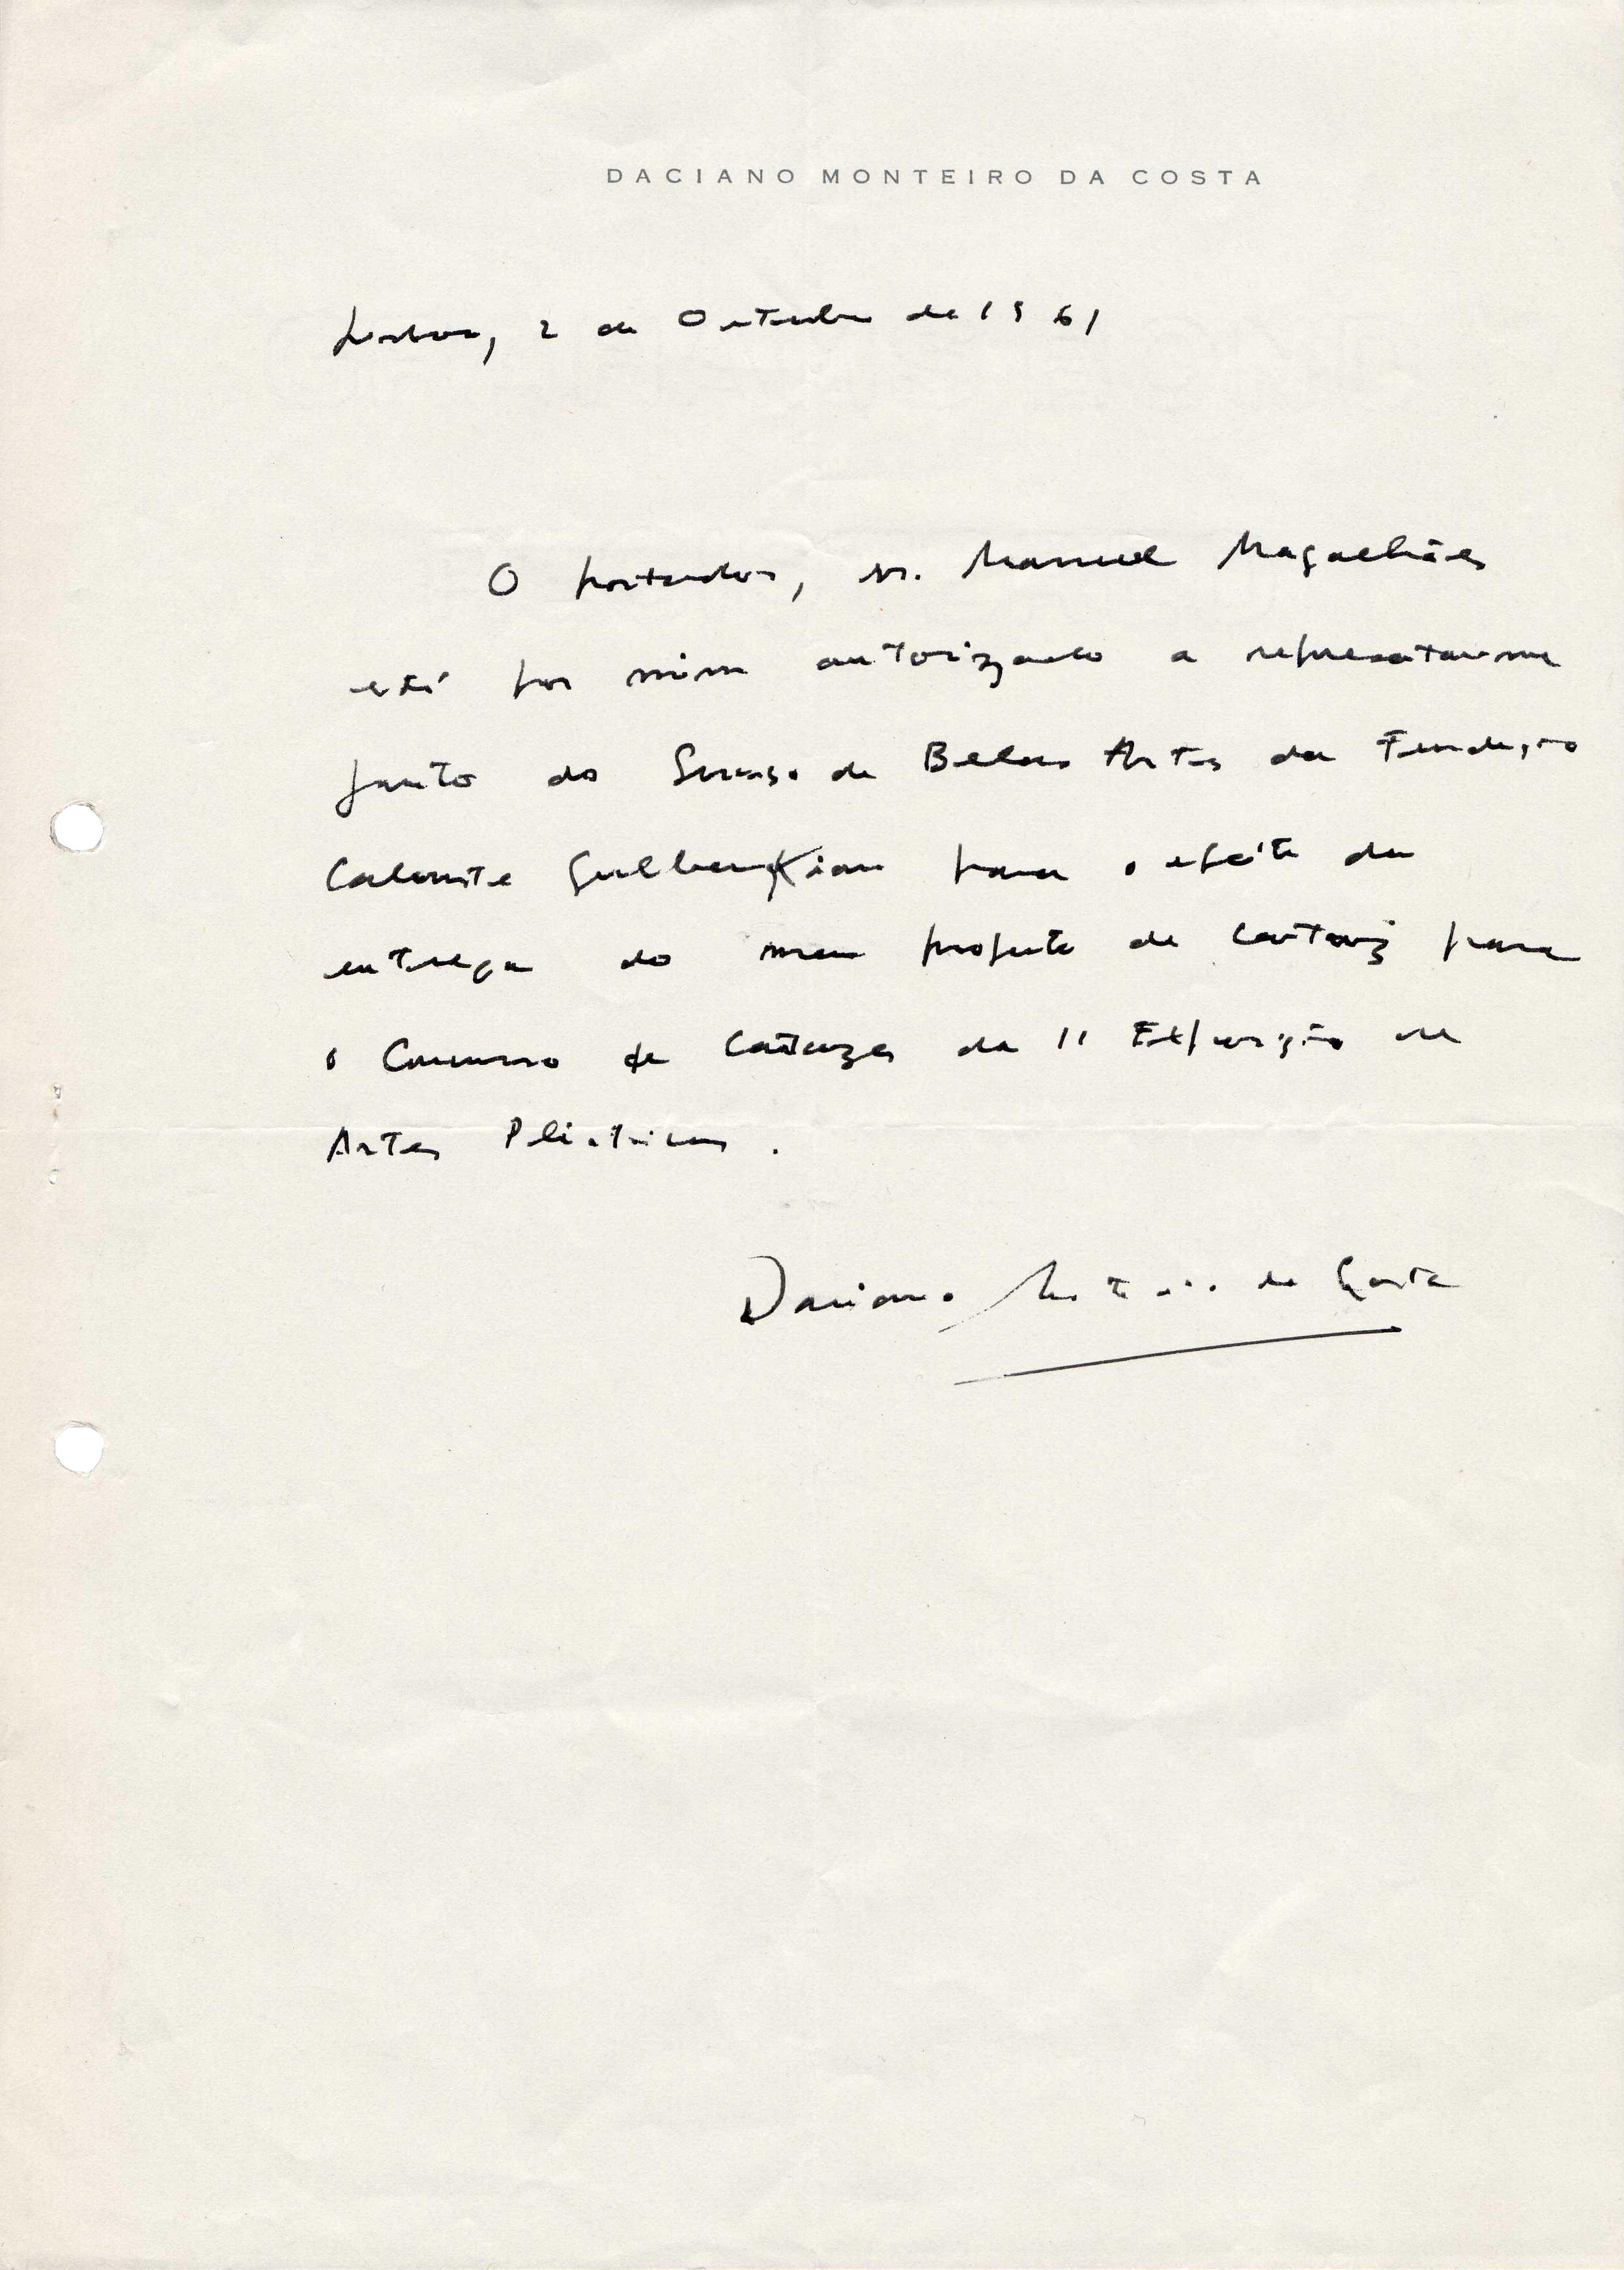 DACIANO MONTEIRO DA COSTA
Lisboa, 2 de Outubro de 1961
O portador, sr. Manuel Magalhães
está por mim autorizado a representar-me
junto do Serviço de Belas Artes da Fundação
Calouste Gulbenkian para o efeito da
entrega do meu projecto de cartaz para
o Concurso de Cartazes da II Exposição de
Artes Plásticas.
Daciano Monteiro da Costa